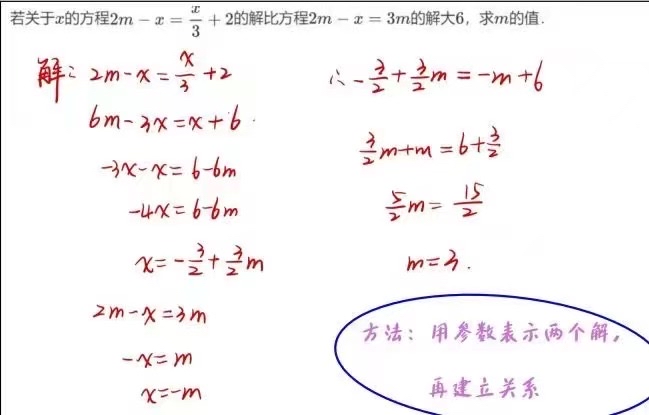 若关于x的方程2m − x = x/3 + 2的解比方程2m − x = 3m的解大6，求m的值.
解: 2m-x=x/3+2
6m-3x=x+6.
-3x-x=6-6m
-4x=6-6m
x=-3/2+3/2m
2m-x=3m
-x=m
x=-m
∴-3/2+3/2m=-m+6
3/2m+m=6+3/2
5/2m=15/2
m=3.
方法: 用参数表示两个解,
再建立关系